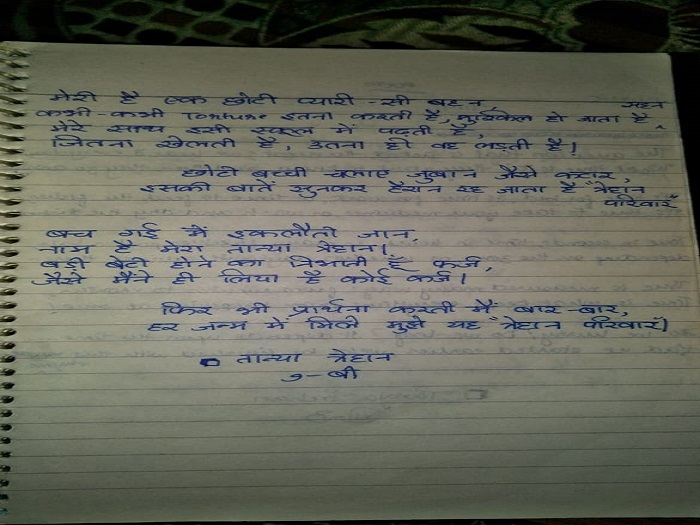 मेरी है एक छोटी प्यारी-सी बहन,
कभी-कभी Torture इतना करती है, मुश्किल हो जाता है सहन
मेरे साथ इसी स्कूल में पढ़ती है,
जितना खेलती है, उतना ही वह लड़ती है।
छोटी बच्ची चलाए जुबान जैसे कटार,
इसकी बातें सुनकर हैरान रह जाता है "त्रेहान
परिवार"
बच गई मैं इकलौती जान,
नाम है मेरा तान्या त्रेहान।
बड़ी बेटी होने का निभाती हूँ फर्ज,
जैसे मैंने ही लिया है कोई कर्ज।
फिर भी प्रार्थना करती मैं बार-बार,
हर जन्म में मिले मुझे यह "त्रेहान परिवार"।
तान्या त्रेहान
9-बी